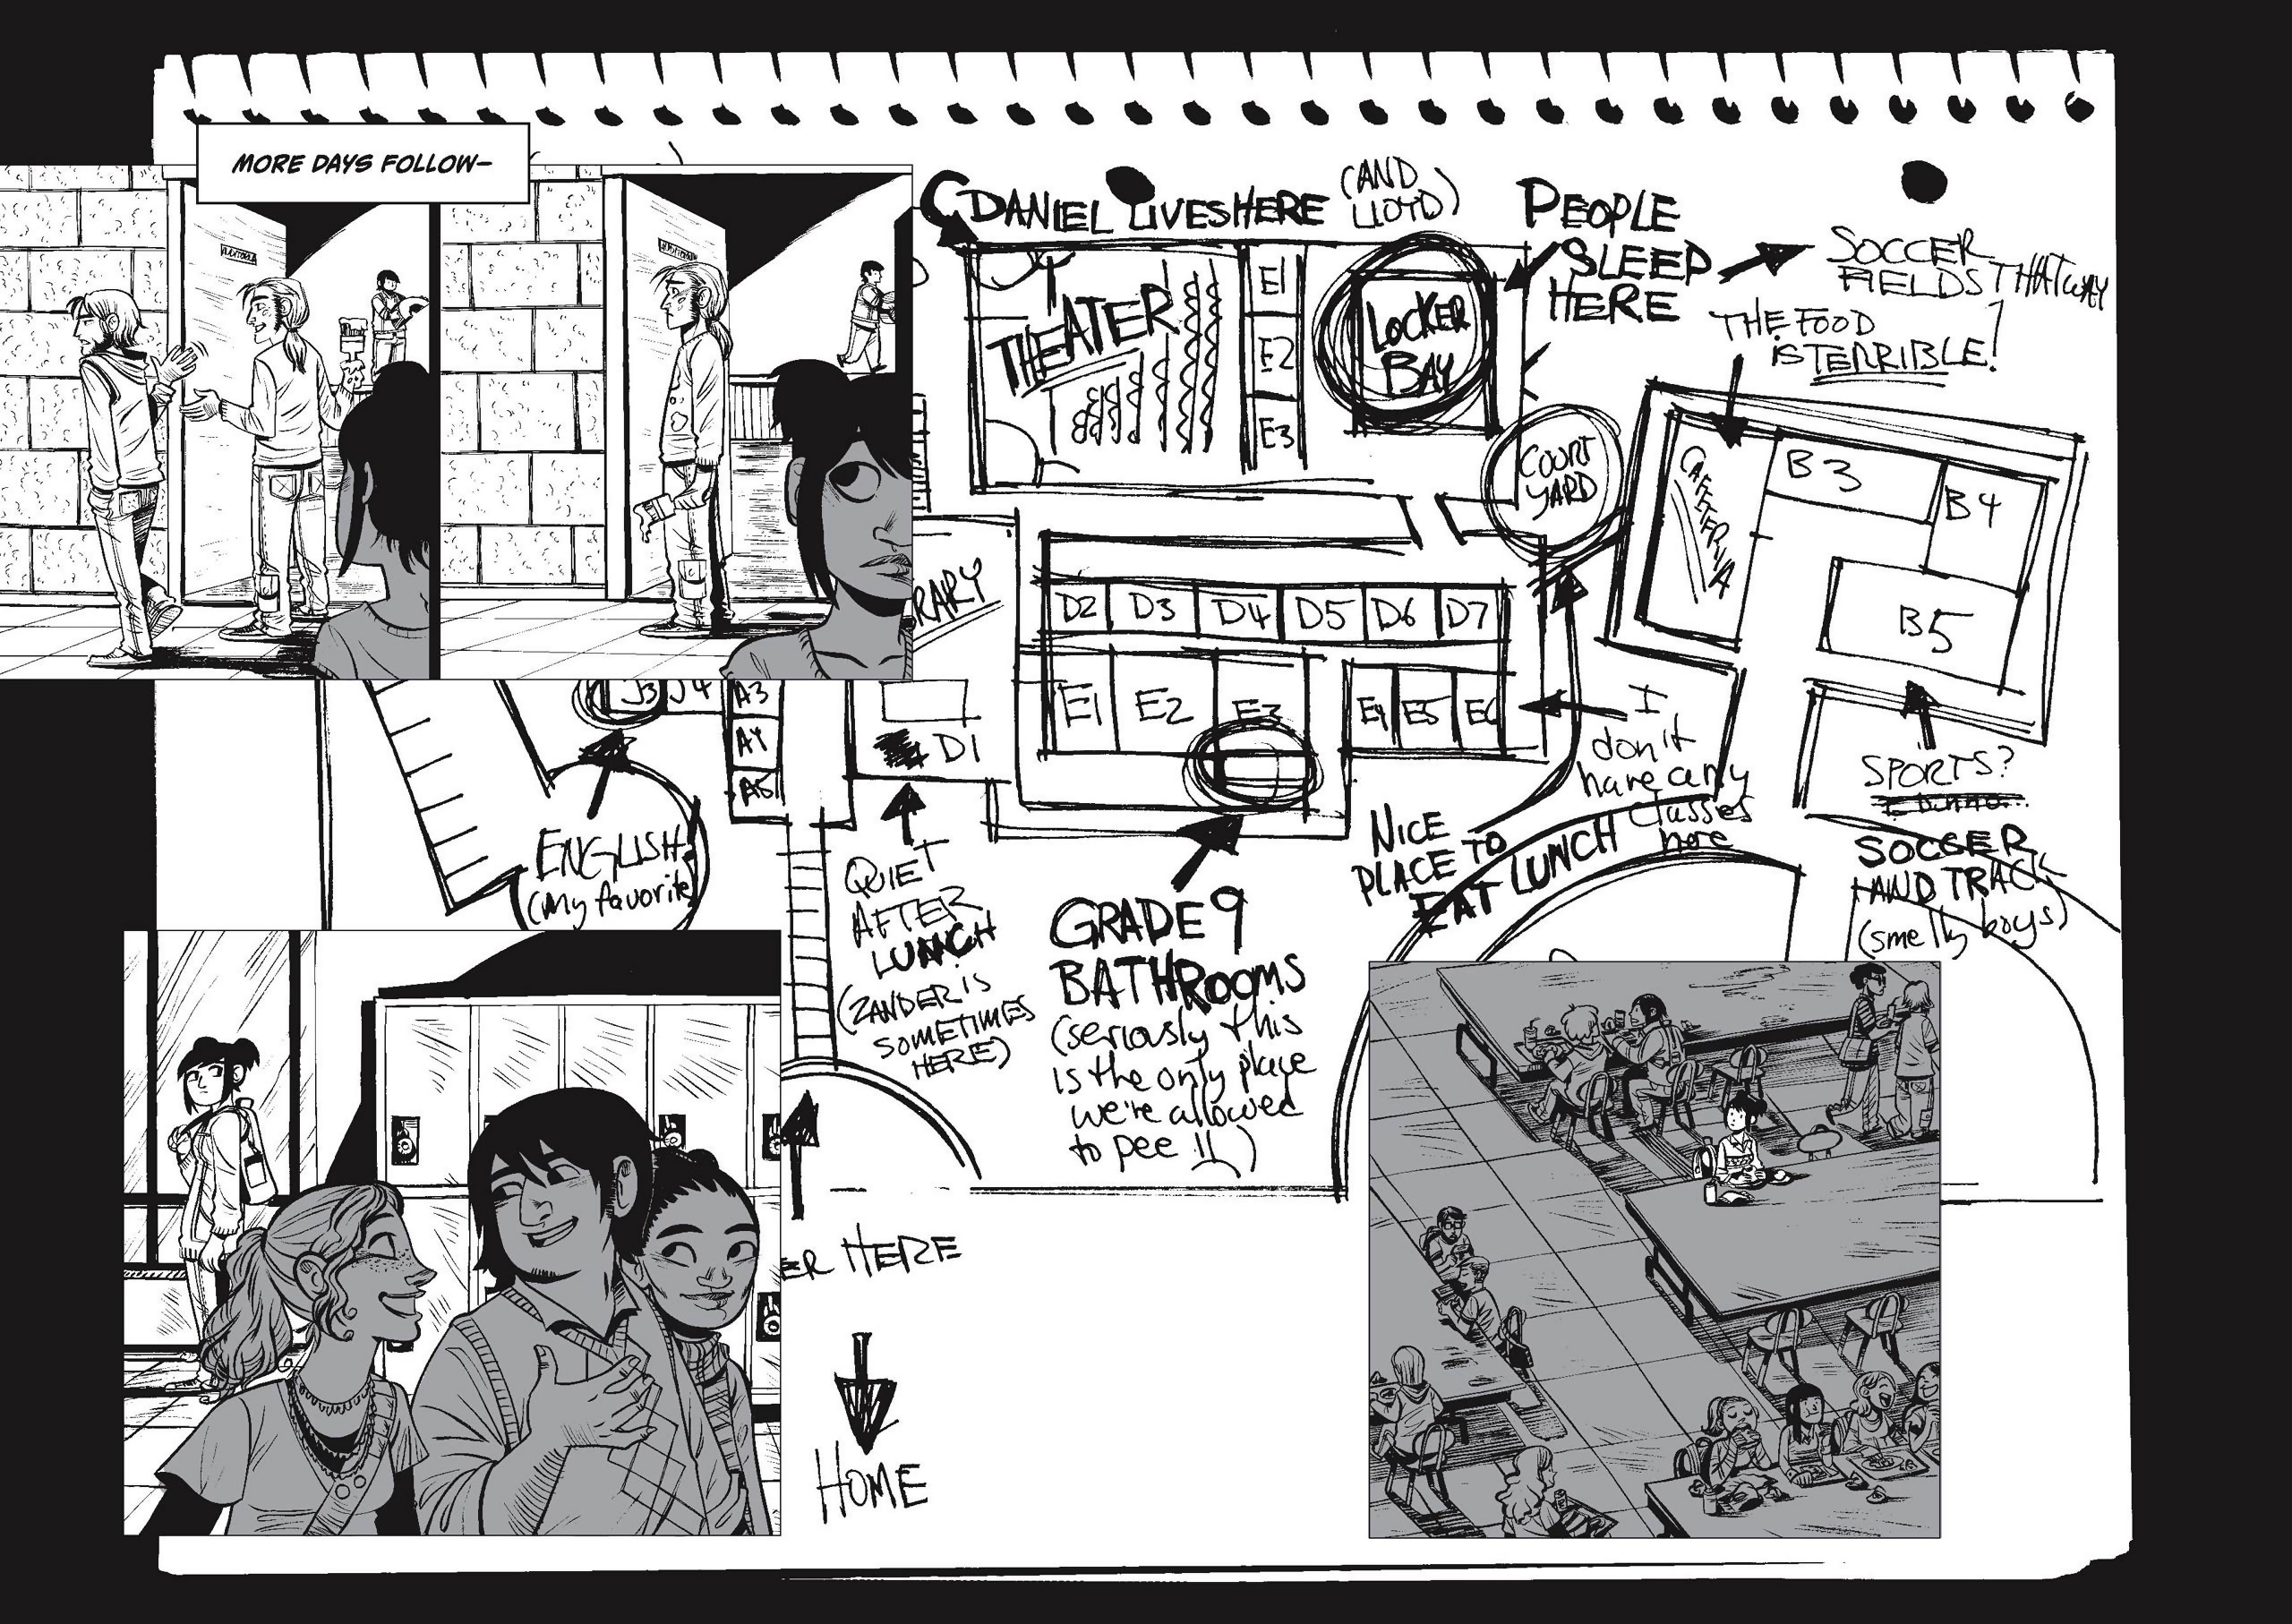 MORE DAYS FOLLOW–
DANIEL LIVES HERE
(AND
LLOYD)
PEOPLE
SLEEP
HERE
SOCCER
FIELDS THAT WAY
THE FOOD
IS TERRIBLE!
THEATER
E1
E2
E3
LOCKER
BAY
COURT
YARD
CAFETERIA
B3
B4
B5
RARY
D2
D3
D4
D5
D6
D7
E1
E2
E3
E4
E5
E6
J3
J4
A3
A4
A5
D1
I
don't
have any
classes
here
SPORTS?
SOCCER
AND TRACK
(smelly boys)
ENGLISH
(My favorite
QUIET
AFTER
LUNCH
(ZANDER IS
SOMETIMES
HERE)
GRADE 9
BATHROOMS
(seriously this
is the only place
we're allowed
to pee !!)
NICE
PLACE TO
EAT LUNCH
ER HERE
HOME